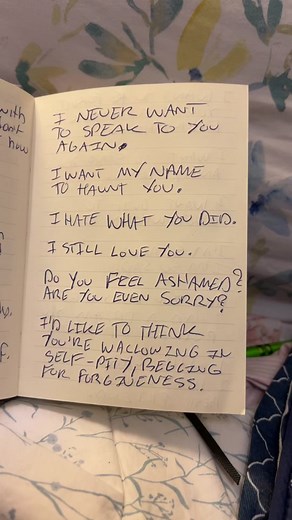 with
want
how
I NEVER WANT
TO SPEAK TO YOU
AGAIN.
I WANT MY NAME
TO HAUNT YOU.
I HATE WHAT YOU DID.
I STILL LOVE YOU.
DO YOU FEEL ASHAMED?
ARE YOU EVEN SORRY?
I'D LIKE TO THINK
YOU'RE WALLOWING IN
SELF-PITY, BEGGING
FOR FORGIVENESS.